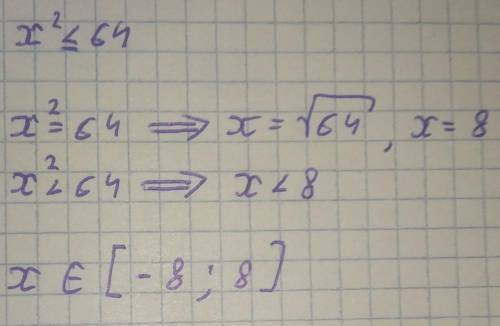 x² ≤ 64
x² = 64 ⟹ x = √64, x = 8
x² < 64 ⟹ x < 8
x ∈ [-8; 8]